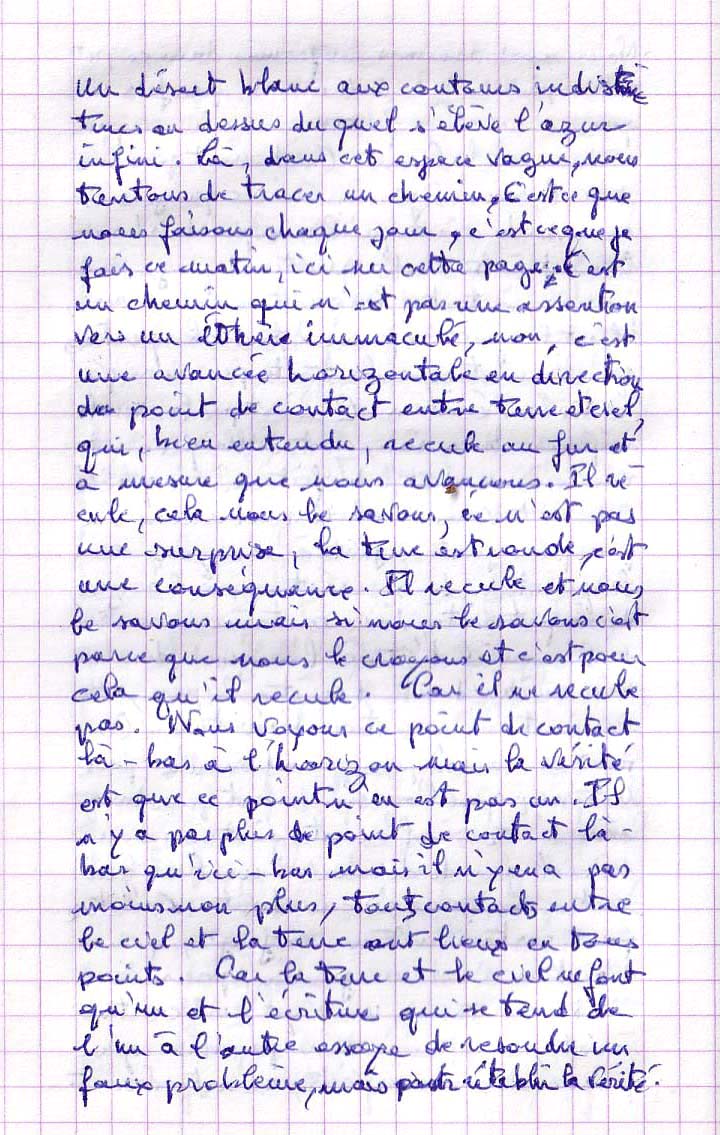 un désert blanc aux contours indis
tincs au dessus du quel s'élève l'azur
infini. Là, dans cet espace vague, nous
tentons de tracer un chemin, C'est ce que
nous faisons chaque jour, c'est ce que je
fais ce matin, ici sur cette page. C'est
un chemin qui n'est pas une assention
vers un éthère immaculé, non, c'est
une avancée horizontale en direction
du point de contact entre terre et ciel,
qui, bien entendu, recule au fur et
à mesure que nous avançons. Il re
cule, cela nous le savons, ce n'est pas
une surprise, la terre est ronde, c'est
une conséquence. Il recule et nous
le savons mais si nous le savons c'est
parce que nous le croyons et c'est pour
cela qu'il recule. Car il ne recule
pas. Nous voyons ce point de contact
là-bas à l'horizon mais la vérité
est que ce point n'en est pas un. Il
n'y a pas plus de point de contact là-
bas qu'ici-bas mais il n'y en a pas
moins non plus, touts contacts entre
le ciel et la terre ont lieux en tous
points. Car la terre et le ciel ne font
qu'un et l'écriture qui se tend de
l'un à l'autre essaye de resoudre un
faux problème, mais pour rétablir la vérité.